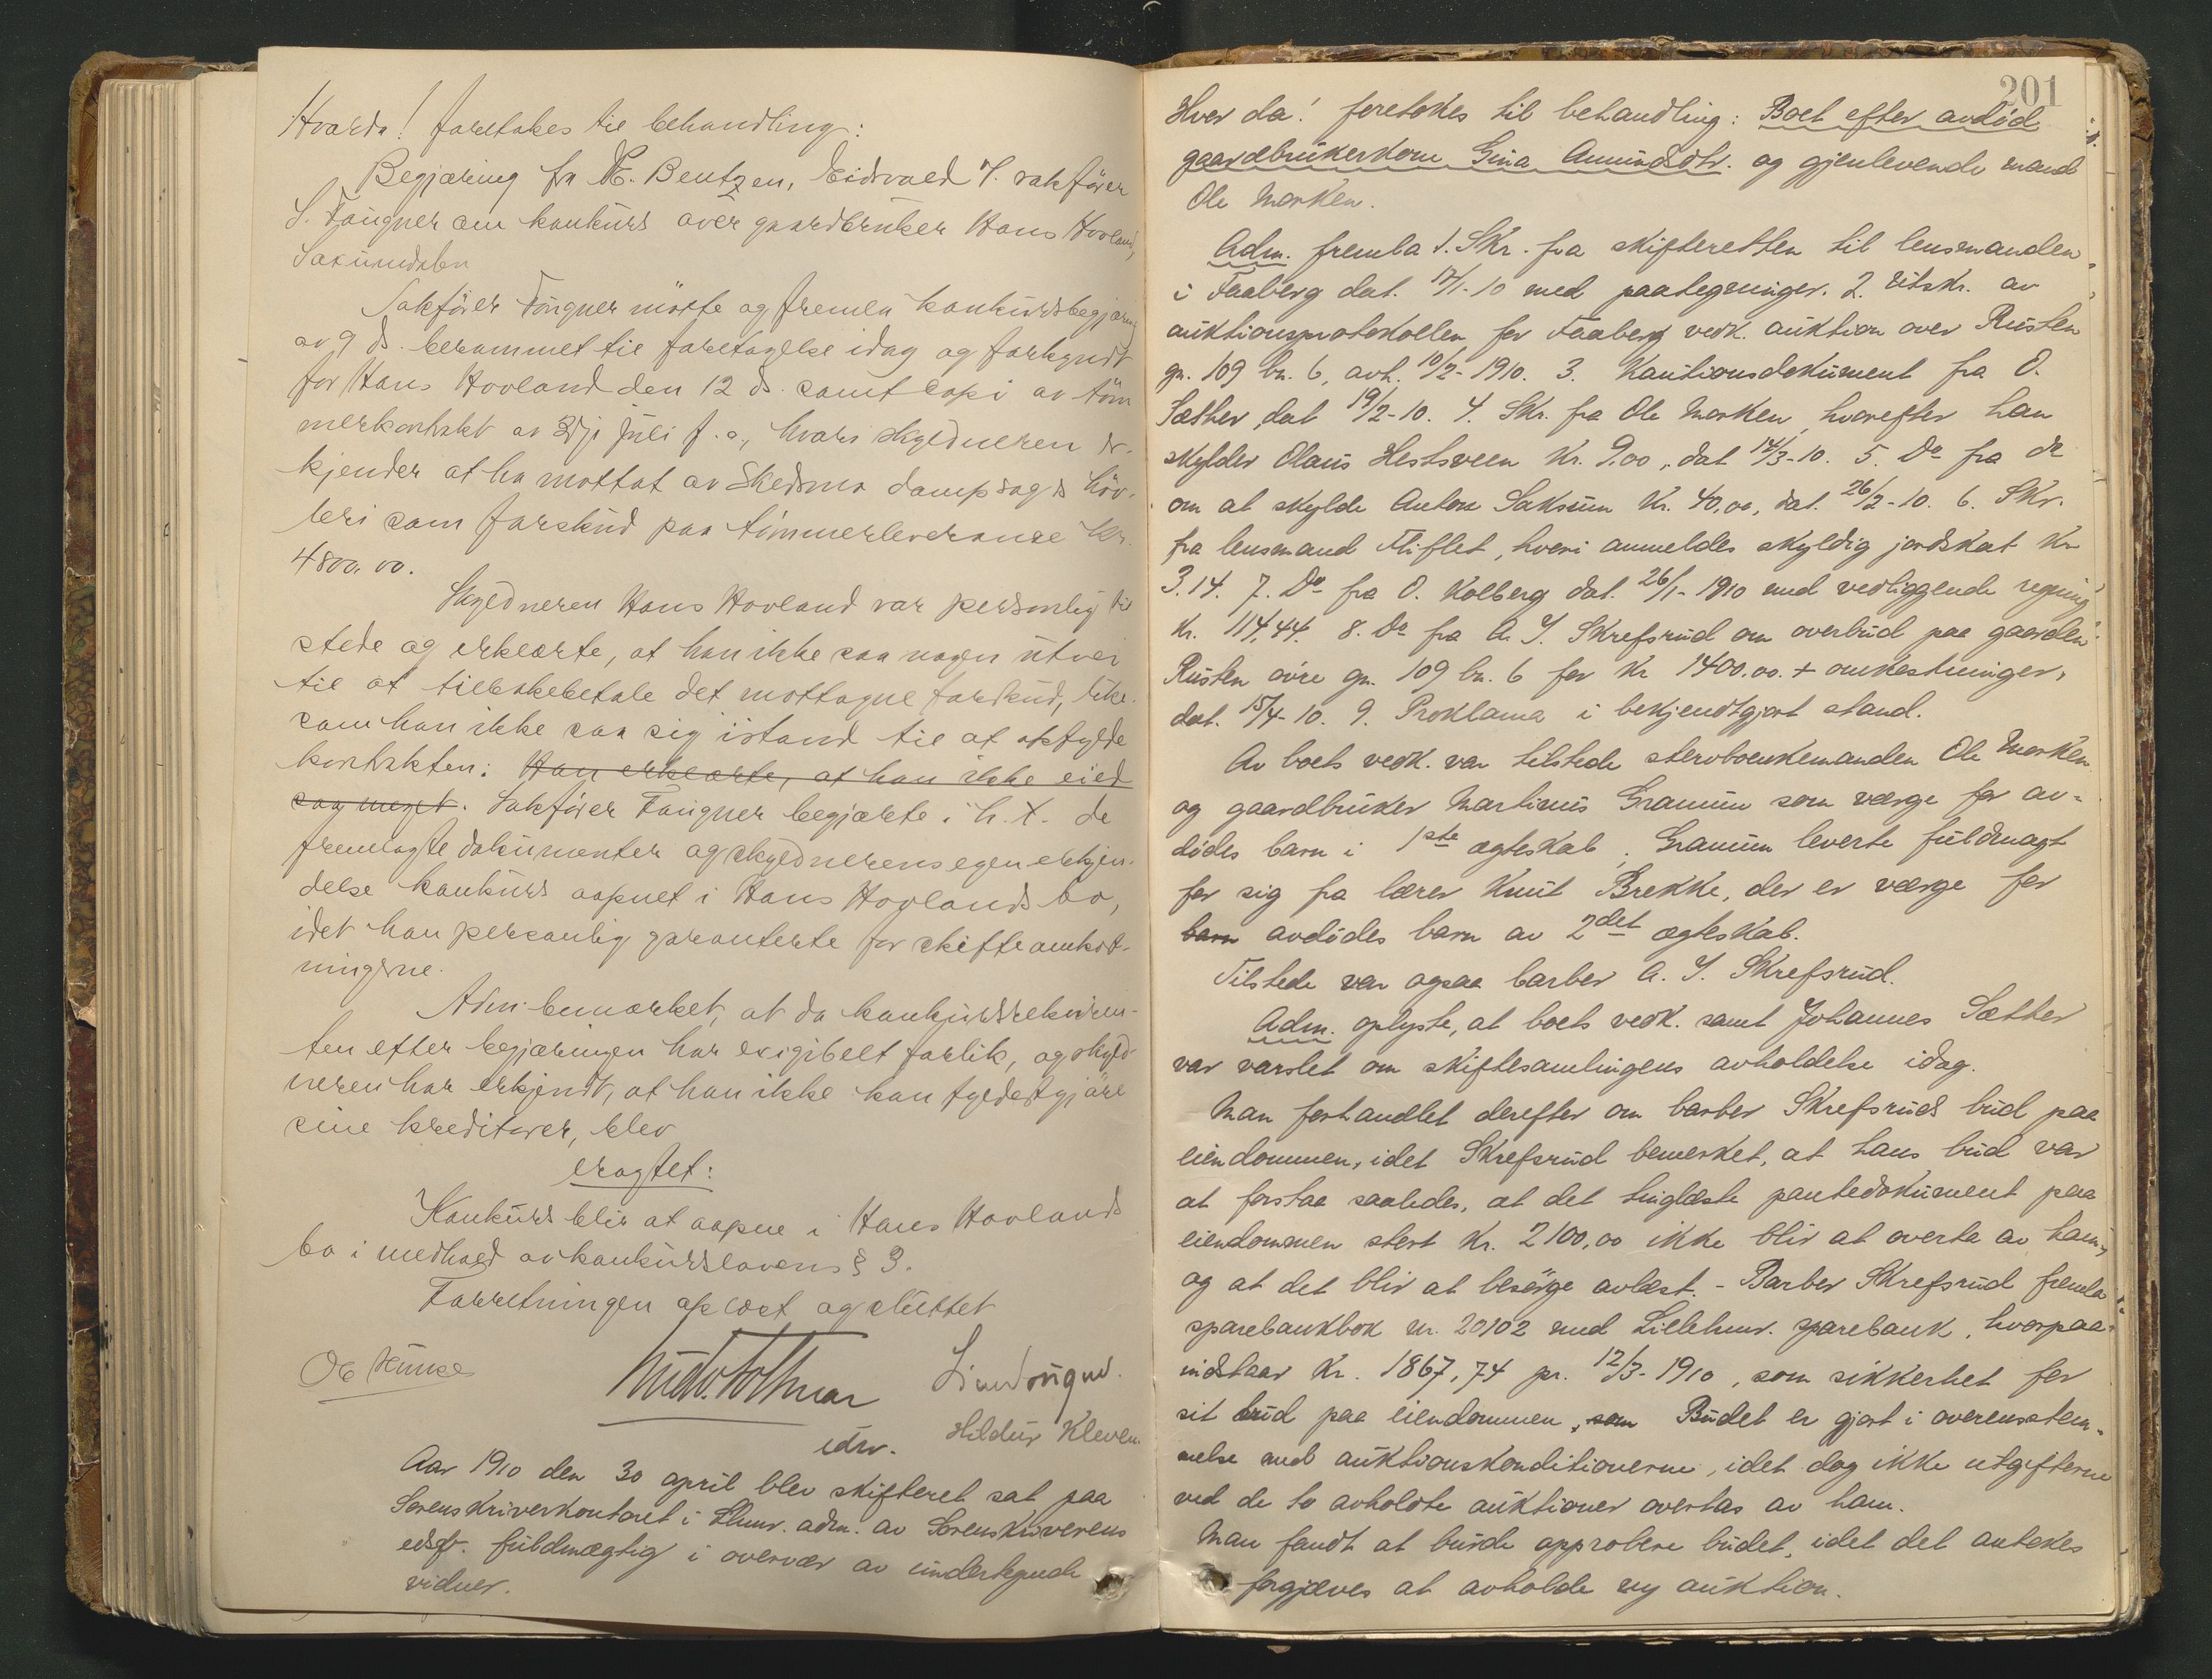 Hvorda! foretokes til behandling:
Begjæring fra N. E. Bentzen, Eidsvold v. sakfører
S. Fougner om konkurs over gaardbruker Hans Hovland,
Saxumdalen
Sakfører Fougner mötte og fremla konkursbegjæring
av 9 ds. berammet til foretagelse idag og forkyndt
for Hans Hovland den 12 ds. samt kopi av töm
merkontrakt av juli f. a., hvori skyldneren er-
kjender at ha mottat av Skedsmo dampsag & höv-
leri som forskud paa tömmerleveranse kr.
4800.00.
Skyldneren Hans Hovland var personlig til
stede og erklærte, at han ikke saa nogen utvei
til at tilbakebetale det mottagne forskud, like-
som han ikke saa sig istand til at opfylde
kontrakten. Han erklærte, at han ikke eied
saa meget. Sakfører Fougner begjærte i h. t. de
fremlagte dokumenter og skyldnerens egen erkjen-
delse konkurs aapnet i Hans Hovlands bo,
idet han personlig garanterte for skifteomkost-
ningerne.
Adm. bemærket, at da konkursrekviren-
ten efter begjæringen har exigibelt forlik, og skyld-
neren har erkjendt, at han ikke kan fyldestgjöre
sine kreditorer, blev
eragtet:
Konkurs blir at aapne i Hans Hovlands
bo i medhold av konkurslovens § 3.
Forretningen oplæst og sluttet
Hildur Kleven.
edsv.
Aar 1910 den 30 april blev skifteret sat paa
Sorenskriverkontoret i Lhmr. adm. av Sorenskriverens
edsf. fuldmægtig i overvær av undertegnede
vidner.
201
Hvor da! foretokes til behandling: Boet efter avdöd
gaardbrukerkone Gina Amundsdtr. og gjenlevende mand
Ole Morken.
Adm. fremla 1. Skr. fra skifteretten til lensmanden
i Faaberg dat. 17/1-10 med paategninger. 2. Utskr. av
auktionsprotokollen for Faaberg vedk. auktion over Rusten
gn. 109 bn. 6, avh. 10/2-1910. 3. Kautionsdokument fra O.
Sæther dat 19/2-10. 4. Skr. fra Ole Morken, hvorefter han
skylder Olaus Hestsveen Kr. 9.00, dat 14/3-10. 5. Do fra do
om at skylde Anton Saksum Kr. 40.00, dat. 26/2-10. 6. Skr.
fra lensmand Fliflet, hvori anmeldes skyldig jordskat Kr
3.14. 7. Do fra O. Kolberg dat. 26/1-1910 med vedliggende regning
Kr. 114,44. 8. Do fra A. J. Skrefsrud om overbud paa gaarden
Rusten övre gn. 109 bn. 6 for Kr 1400.00. + omkostninger,
dat. 15/4-10. 9. Proklama i bekjendtgjort stand.
Av boets vedk. var tilstede stervboenkemanden Ole Morken
og gaardbruker Martinus Gramum som værge for av-
dödes barn i 1ste ægteskab. Gramum leverte fuldmagt
for sig fra lærer Knut Brekke, der er værge for
barn avdödes barn av 2det ægteskab.
Tilstede var ogsaa barber A. J. Skrefsrud.
Adm. oplyste, at boets vedk. samt Johannes Sæther
var varslet om skiftesamlingens avholdelse idag.
Man forhandlet derefter om barber Skrefsruds bud paa
eiendommen, idet Skrefsrud bemerket, at hans bud var
at forstaa saaledes, at det tinglæste pantedokument paa
eiendommen stort Kr. 2100,00 ikke blir at overta av ham,
og at det blir at besörge avlæst. - Barber Skrefsrud fremla
sparebankbok nr. 20102 med Lillehmr. sparebank, hvorpaa
indstaar Kr. 1867,74 pr. 12/3-1910, som sikkerhet for
sit bud paa eiendommen, som Budet er gjort i overensstem-
melse med auktionskonditionerne, idet dog ikke utgifterne
ved de to avholdte auktioner overtas av ham.
Man fandt at burde approbere budet, idet det antokes
forgjæves at avholde ny auktion.